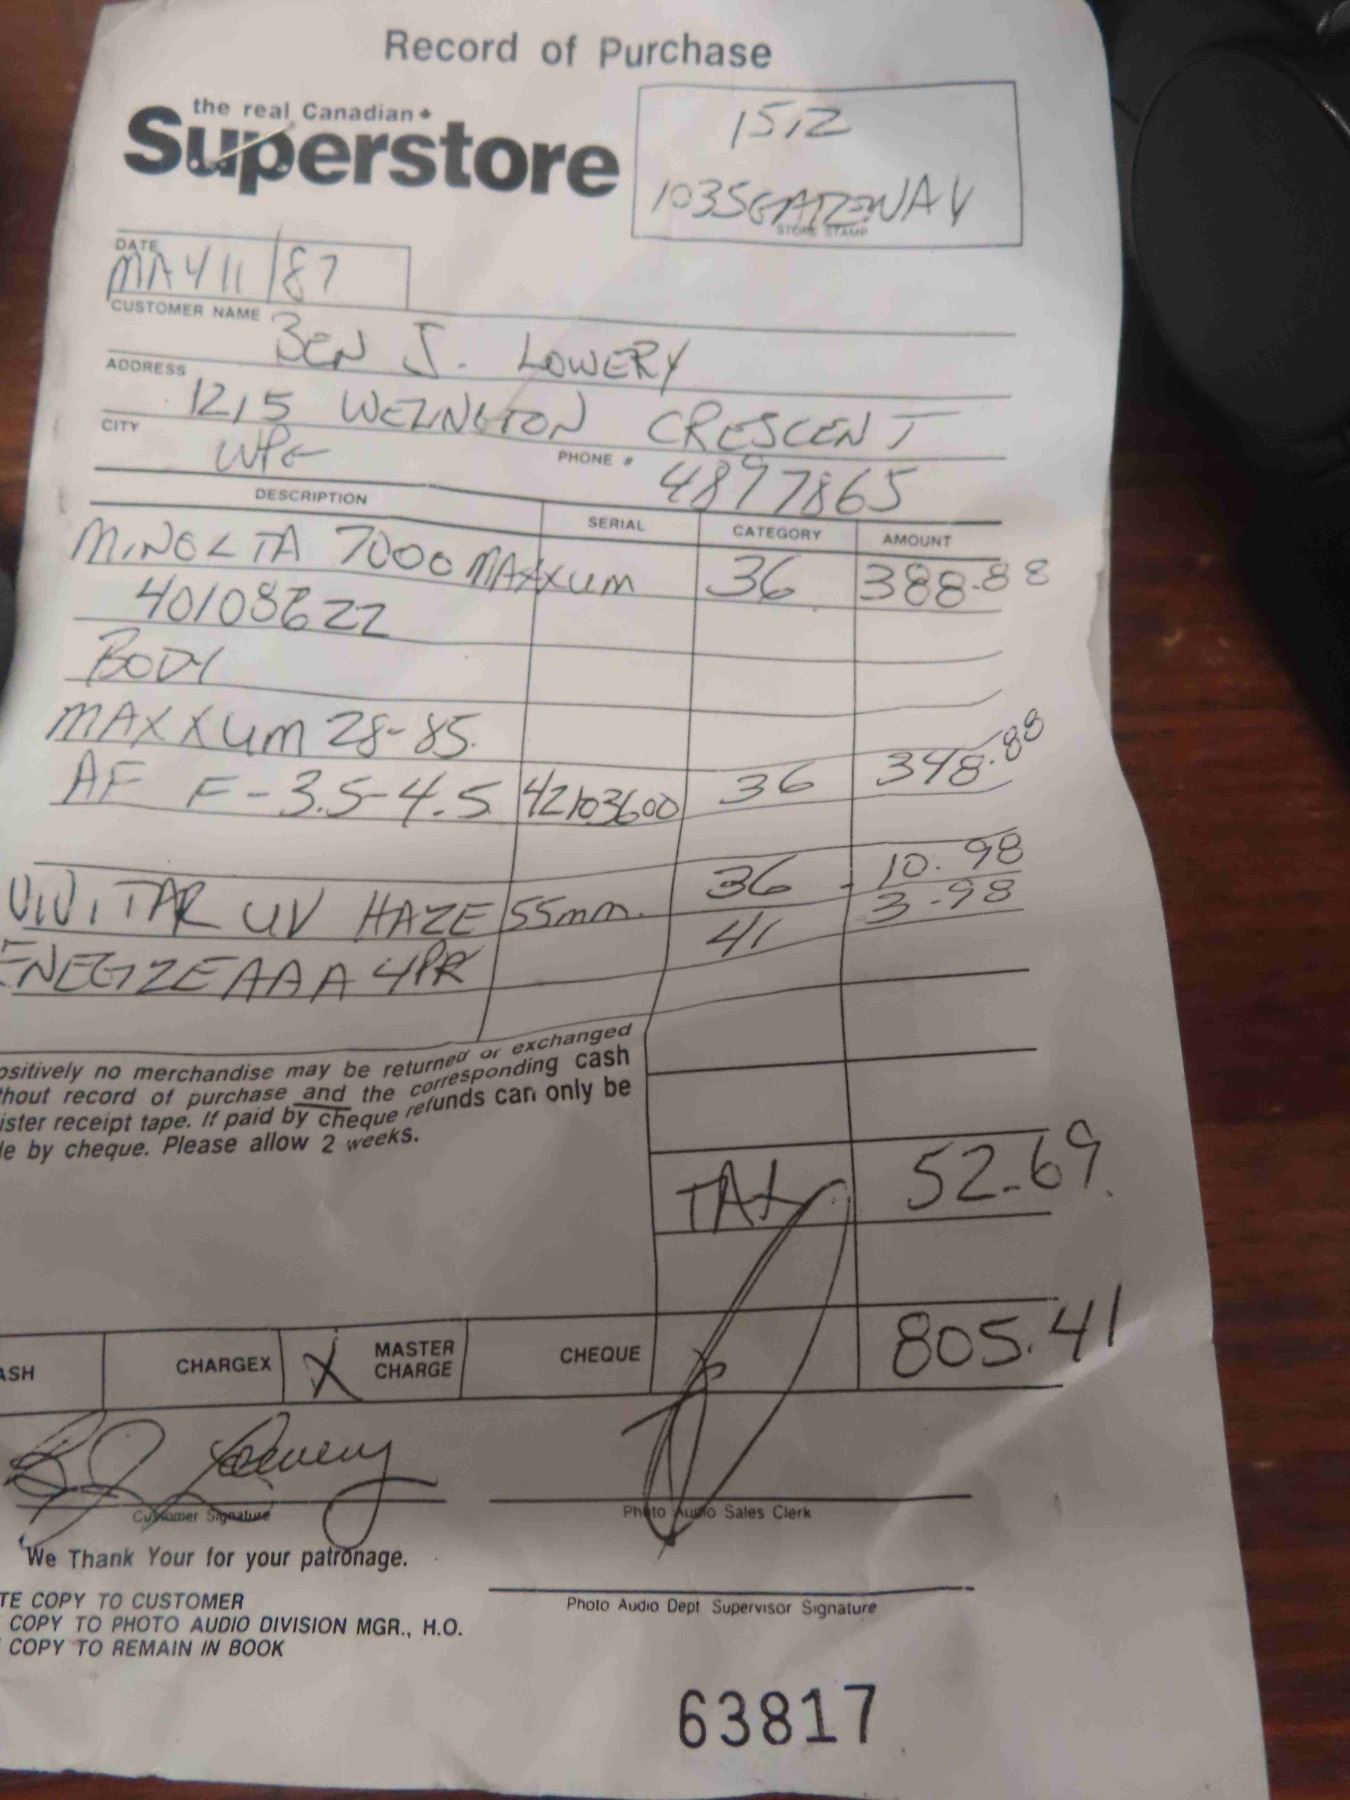 Record of Purchase
the real Canadian
Superstore
1512
1035 GATEWAY
STORE STAMP
DATE
MAY 11/87
CUSTOMER NAME
BEN J. LOWERY
ADDRESS
1215 WELINGTON CRESCENT
CITY
WPG
PHONE #
4897865
DESCRIPTION SERIAL CATEGORY AMOUNT
MINOLTA 7000 MAXXUM 36 388.88
40108622
BODY
MAXXUM 28-85.
AF F-3.5-4.5 42103600 36 348.88
VIVITAR UV HAZE 55mm. 36 10.98
ENEGIZE AAA 4PK 41 3.98
ositively no merchandise may be returned or exchanged
thout record of purchase and the corresponding cash
ister receipt tape. If paid by cheque refunds can only be
le by cheque. Please allow 2 weeks.
TAX 52.69
805.41
ASH CHARGEX X MASTER CHARGE CHEQUE
B J Lowery
Customer Signature
Photo Audio Sales Clerk
We Thank Your for your patronage.
TE COPY TO CUSTOMER
COPY TO PHOTO AUDIO DIVISION MGR., H.O.
COPY TO REMAIN IN BOOK
Photo Audio Dept Supervisor Signature
63817